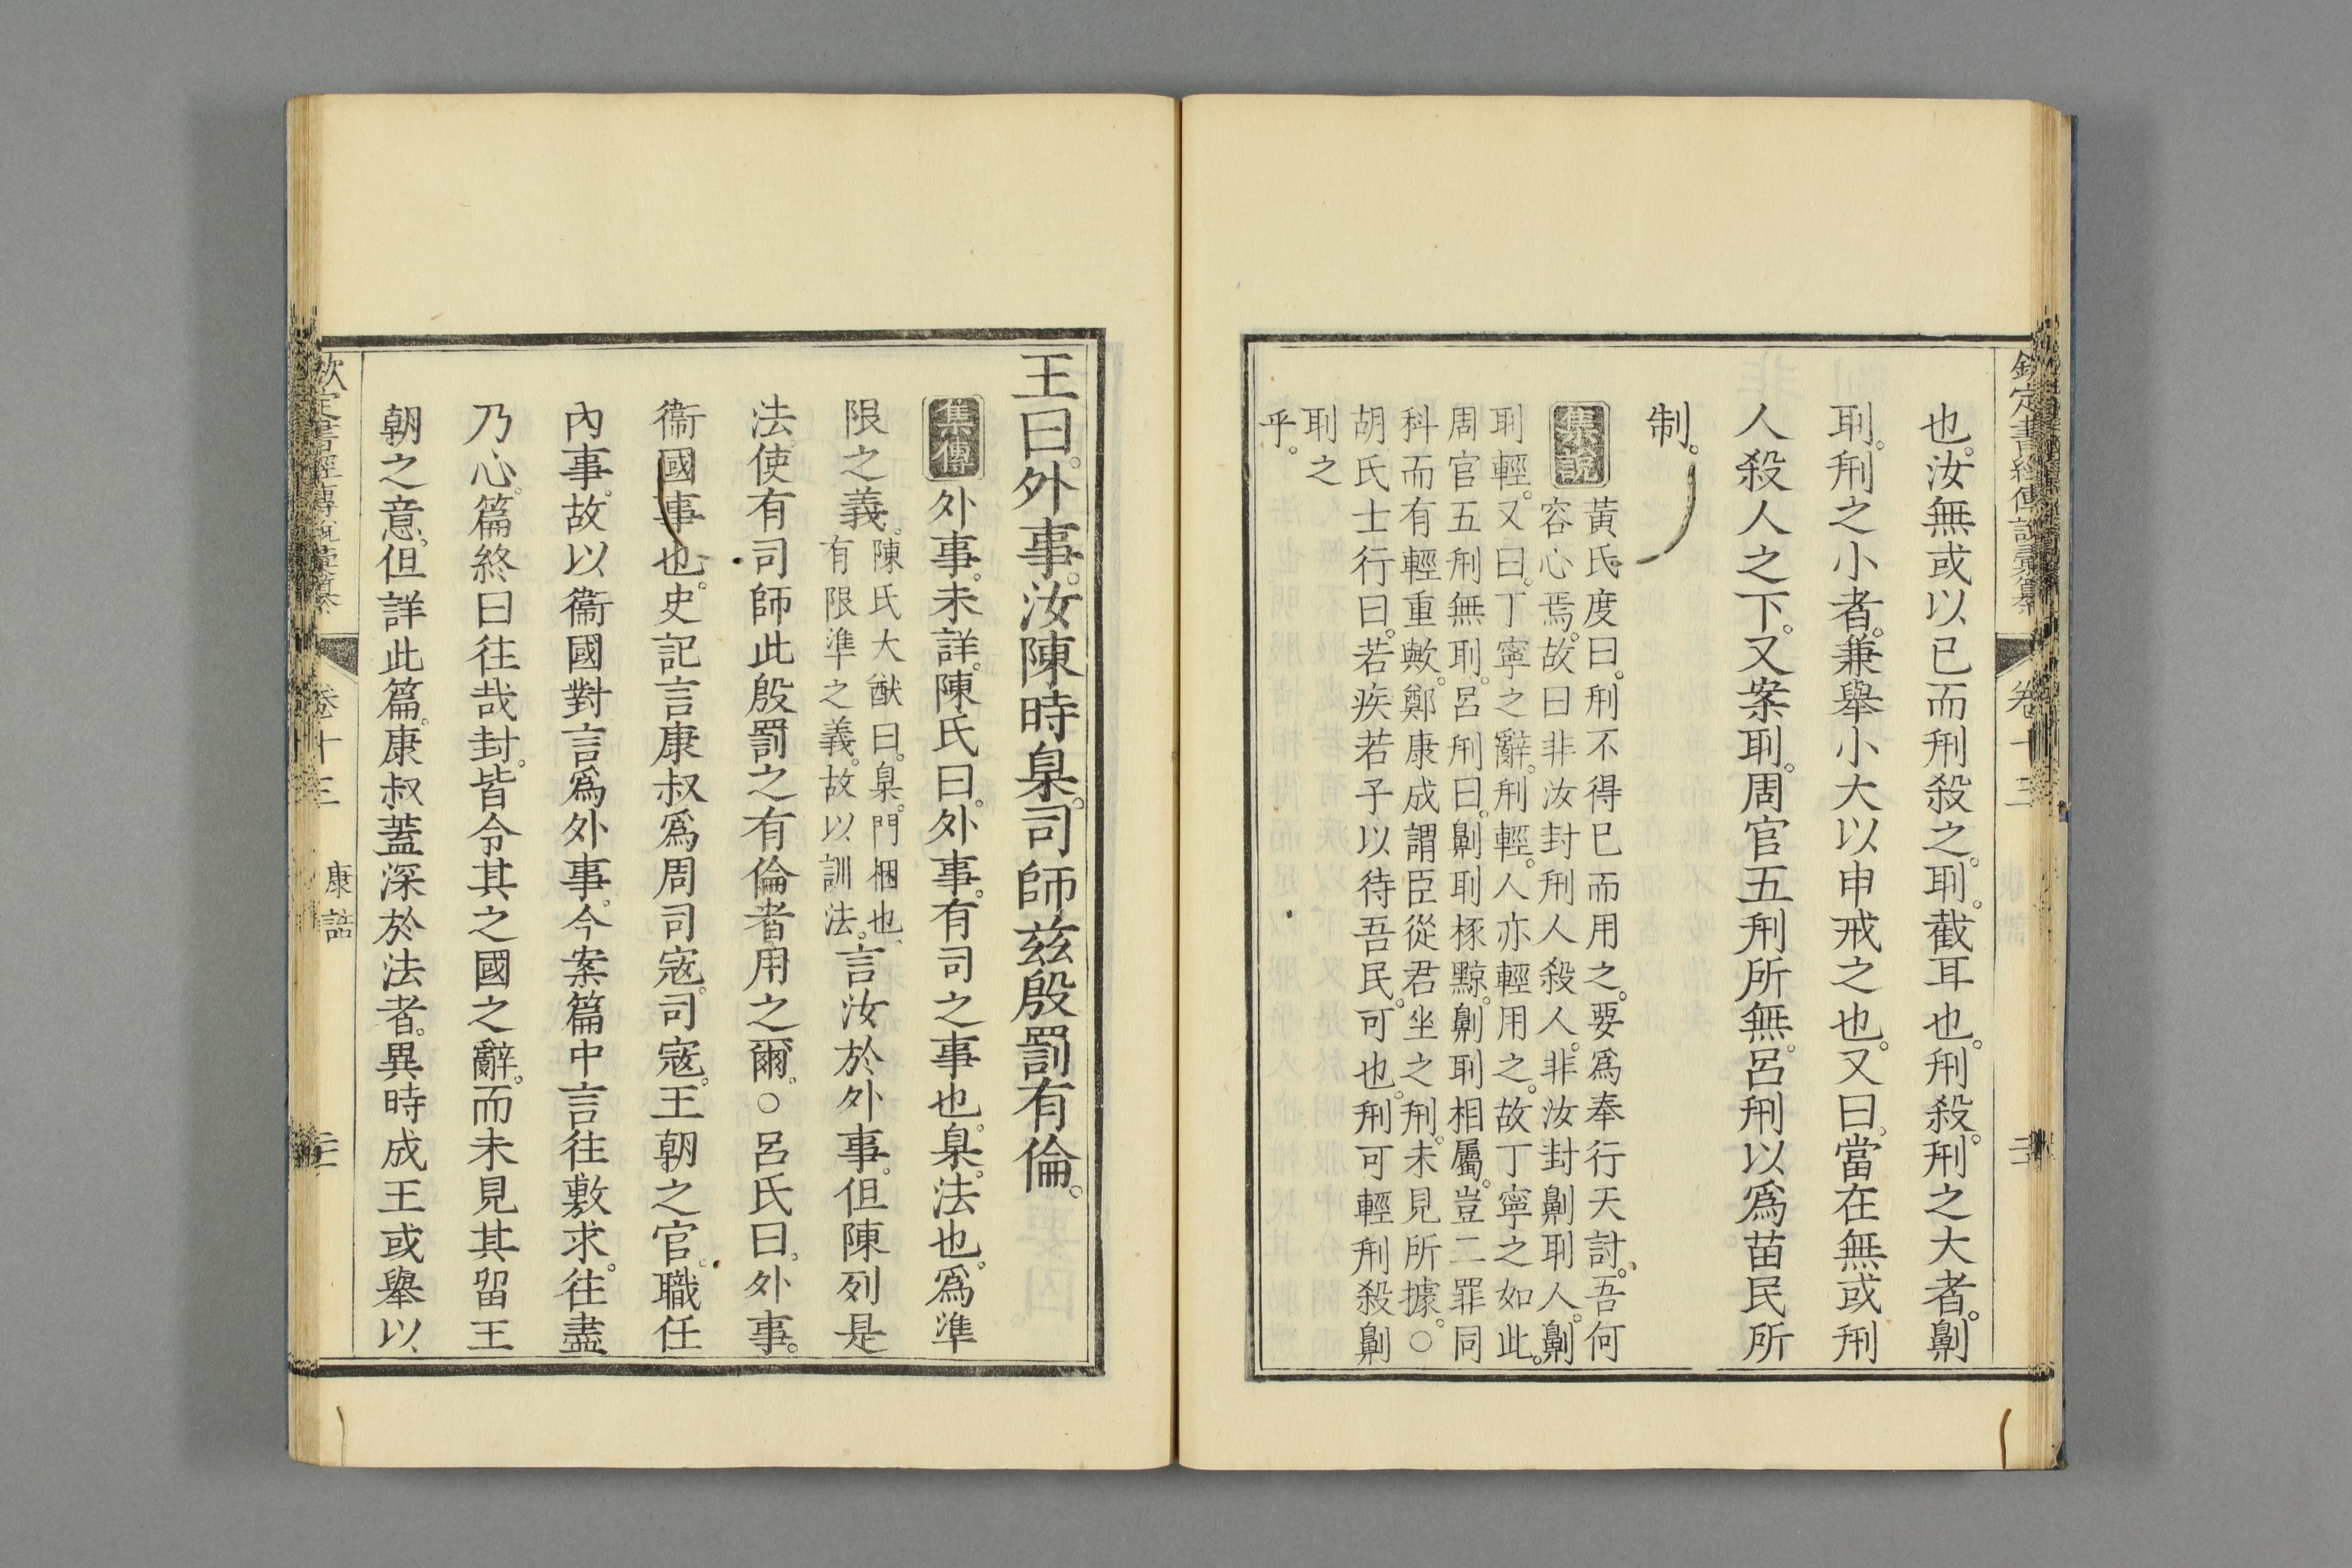 欽定書經傳說彙纂 卷十三
也。汝無或以己而刑殺之。刵。截耳也。刑殺。刑之大者。劓
刵。刑之小者。兼舉小大以申戒之也。又曰。當在無或刑
人殺人之下。又案刵。周官五刑所無。呂刑以爲苗民所
制。
集說
黃氏度曰。刑不得已而用之。要爲奉行天討。吾何
容心焉。故曰非汝封刑人殺人。非汝封劓刵人。劓
刵輕。又曰。丁寧之辭。刑輕。人亦輕用之。故丁寧之如此。
周官五刑無刵。呂刑曰。劓刵椓黥。劓刵相屬。豈二罪同
科而有輕重歟。鄭康成謂臣從君坐之刑。未見所據。○
胡氏士行曰。若疾若子以待吾民。可也。刑可輕刑殺劓
刵之
乎。
王曰。外事。汝陳時臬。司師茲殷罰有倫。
集傳
外事。未詳。陳氏曰。外事。有司之事也。臬。法也。爲準
限之義。
陳氏大猷曰。臬。門梱也。
有限準之義。故以訓法。
言汝於外事。但陳列是
法。使有司師此殷罰之有倫者用之爾。○呂氏曰。外事。
衞國事也。史記言康叔爲周司寇。司寇。王朝之官。職任
內事。故以衞國對言爲外事。今案篇中言往敷求。往盡
乃心。篇終曰往哉封。皆令其之國之辭。而未見其留王
朝之意。但詳此篇。康叔蓋深於法者。異時成王或舉以
欽定書經傳說彙纂 卷十三 康誥